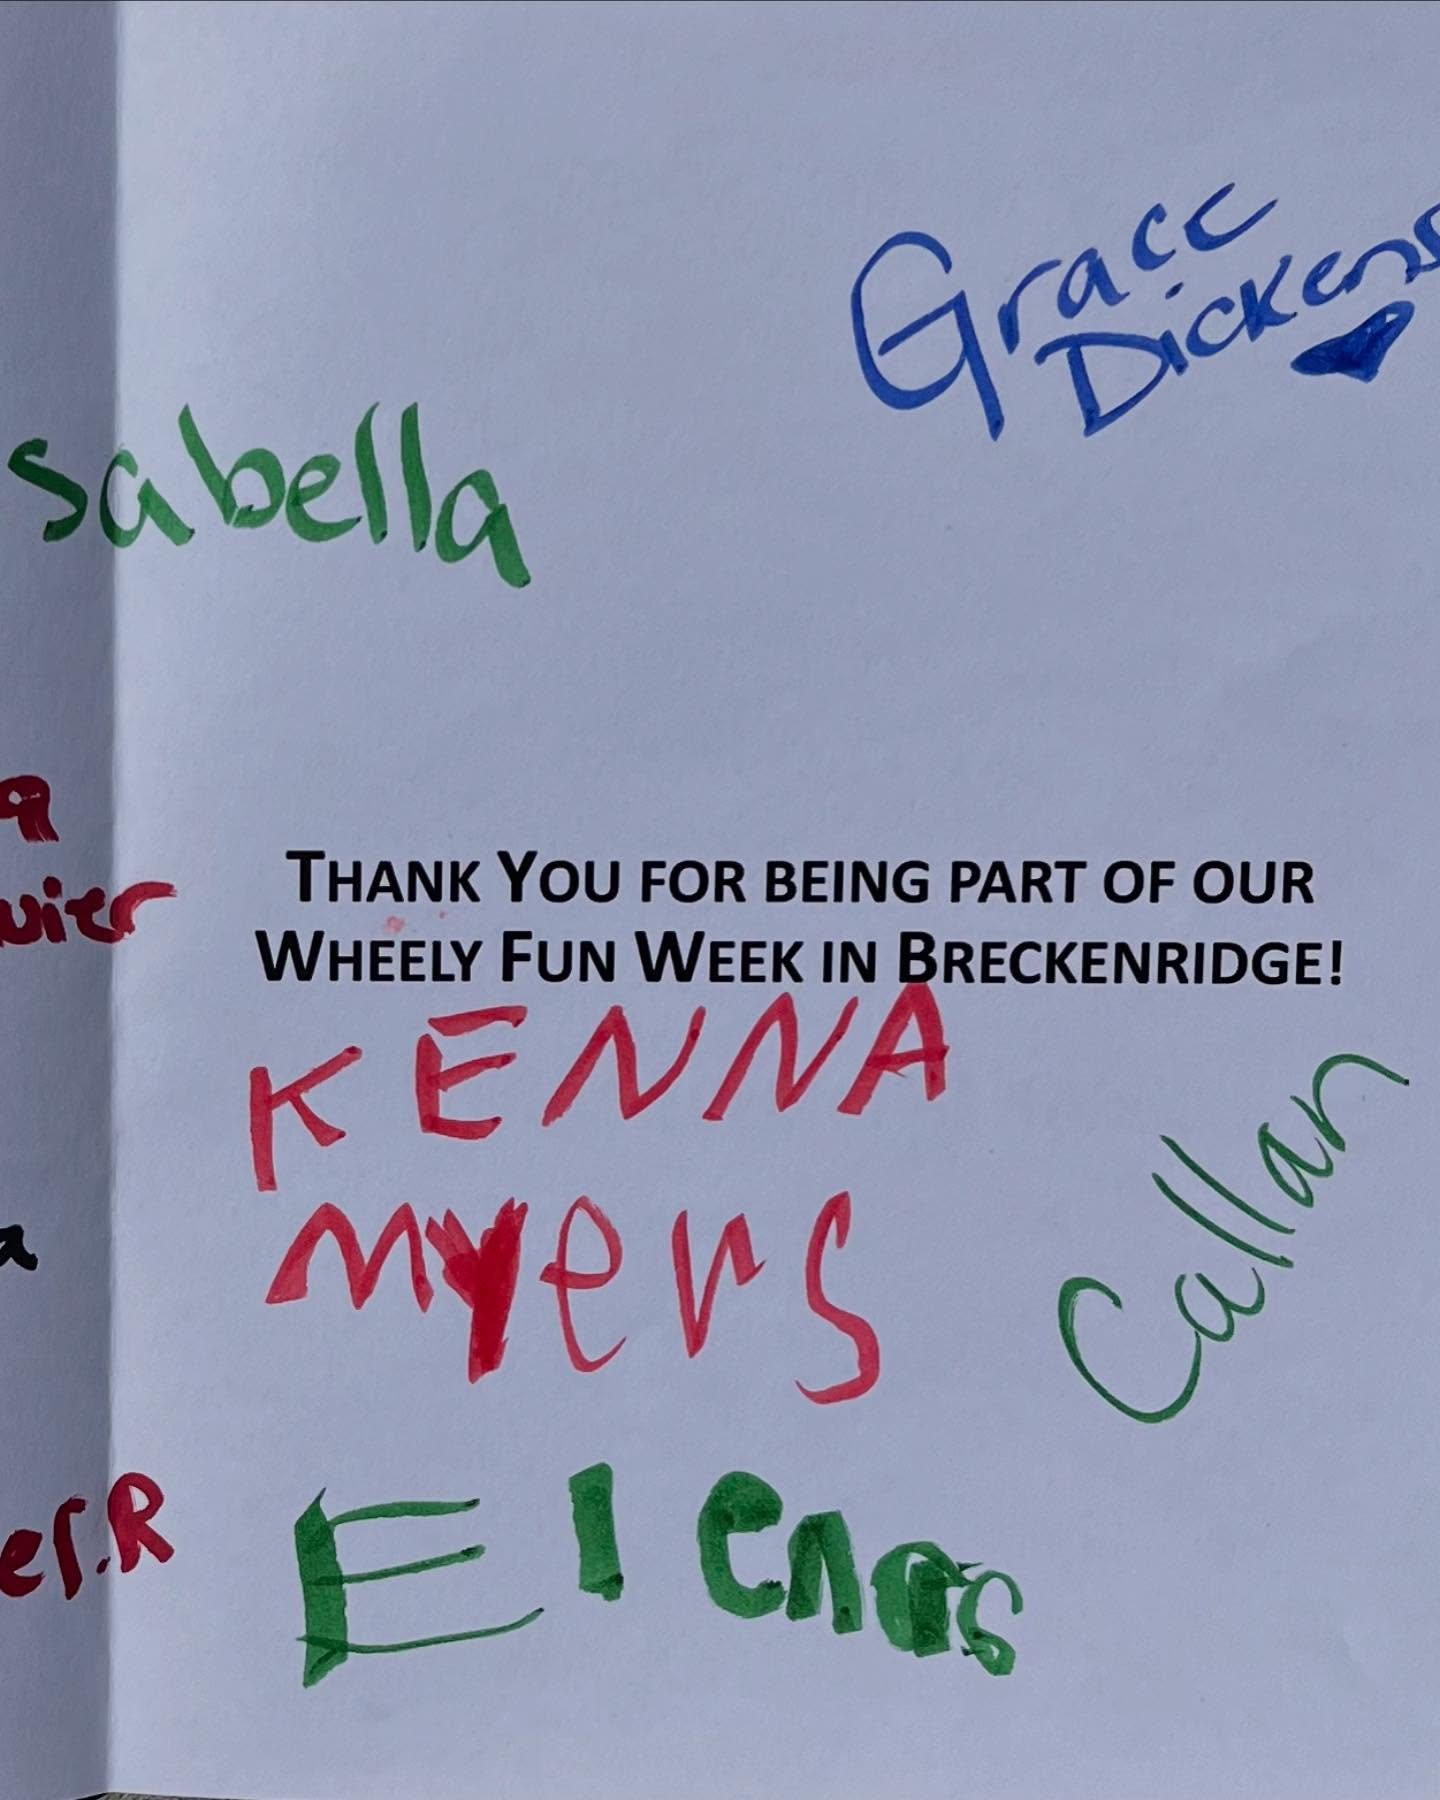 Grace
Dickens
sabella
THANK YOU FOR BEING PART OF OUR
WHEELY FUN WEEK IN BRECKENRIDGE!
KENNA
Myers
Callan
Elena S
er.R